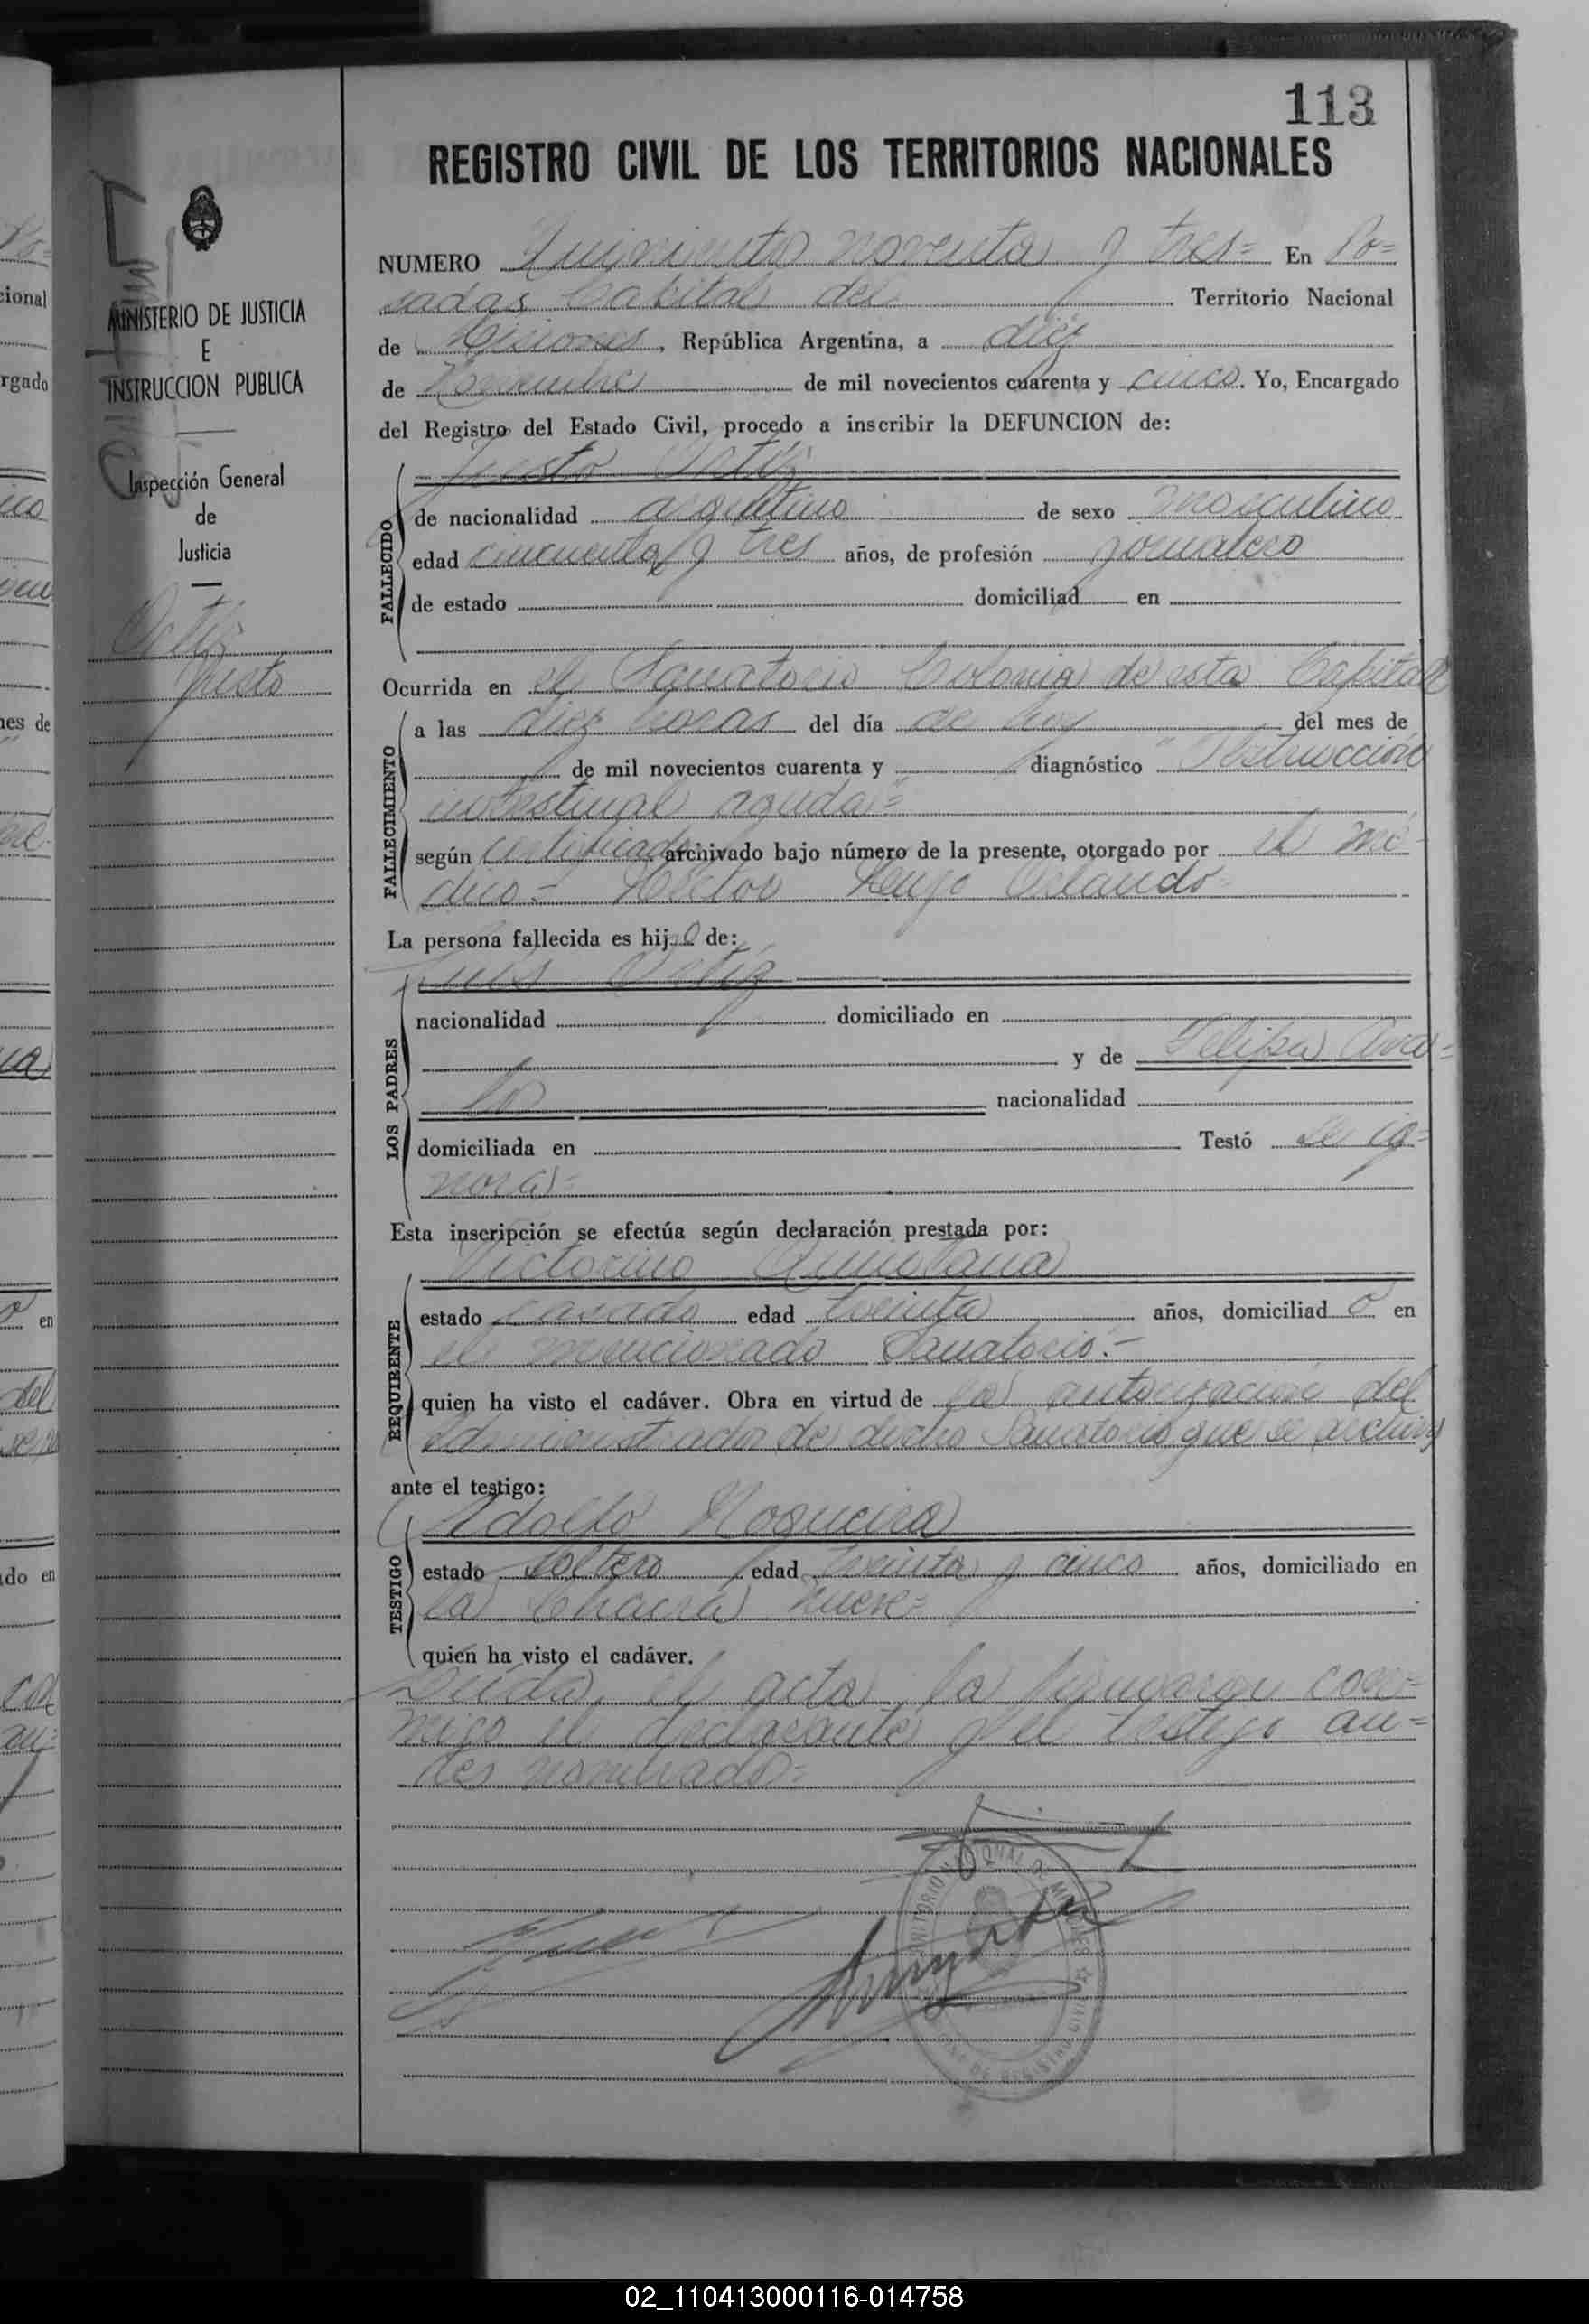 113
REGISTRO CIVIL DE LOS TERRITORIOS NACIONALES
NUMERO Quinientos noventa y tres= En Po=
sadas Capital del Territorio Nacional
de Misiones, República Argentina, a diez
de Noviembre de mil novecientos cuarenta y cinco. Yo, Encargado
del Registro del Estado Civil, procedo a inscribir la DEFUNCION de:
Justo Ortíz
FALLECIDO
de nacionalidad argentino de sexo masculino
edad cincuenta y tres años, de profesión jornalero
de estado domiciliad en
Ocurrida en el Sanatorio Colonia de esta Capital
FALLECIMIENTO
a las diez horas del día de hoy del mes de
de mil novecientos cuarenta y diagnóstico "Obstrucción
intestinal aguda"=
según certificado archivado bajo número de la presente, otorgado por el mé
dico= Héctor Orlando
La persona fallecida es hijo de:
Luis Ortíz
LOS PADRES
nacionalidad domiciliado en
y de Felipa
nacionalidad
domiciliada en Testó se ig=
nora=
Esta inscripción se efectúa según declaración prestada por:
Victorino Quintana
REQUIRENTE
estado casado edad treinta años, domiciliado en
el mencionado Sanatorio.-
quien ha visto el cadáver. Obra en virtud de la autorización del
Administrador de dicho Sanatorio que se archiva
ante el testigo:
Adolfo Nogueira
TESTIGO
estado soltero edad treinta y cinco años, domiciliado en
la Chacra nueve=
quien ha visto el cadáver.
Leída el acta la firmaron con=
migo el declarante y el testigo an=
tes nombrado=
MINISTERIO DE JUSTICIA
E
INSTRUCCION PUBLICA
Inspección General
de
Justicia
Ortíz
Justo
02_110413000116-014758